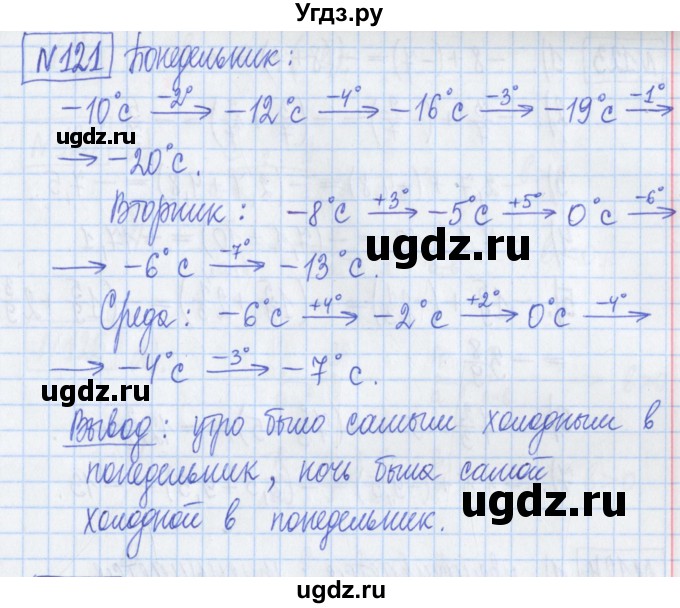 Угдз.ру
№121 Понедельник:
-10°с -2°→ -12°с -4°→ -16°с -3°→ -19°с -1°→
ugdz.ru
→ -20°с.
Вторник: -8°с +3°→ -5°с +5°→ 0°с -6°→
ugdz.ru
→ -6°с -7°→ -13°с.
Среда: -6°с +4°→ -2°с +2°→ 0°с -4°→
→ -4°с -3°→ -7°с.
ugdz.ru
Вывод: утро было самым холодным в
понедельник, ночь была самой
ugdz.ru
холодной в понедельник.
ugdz.ru